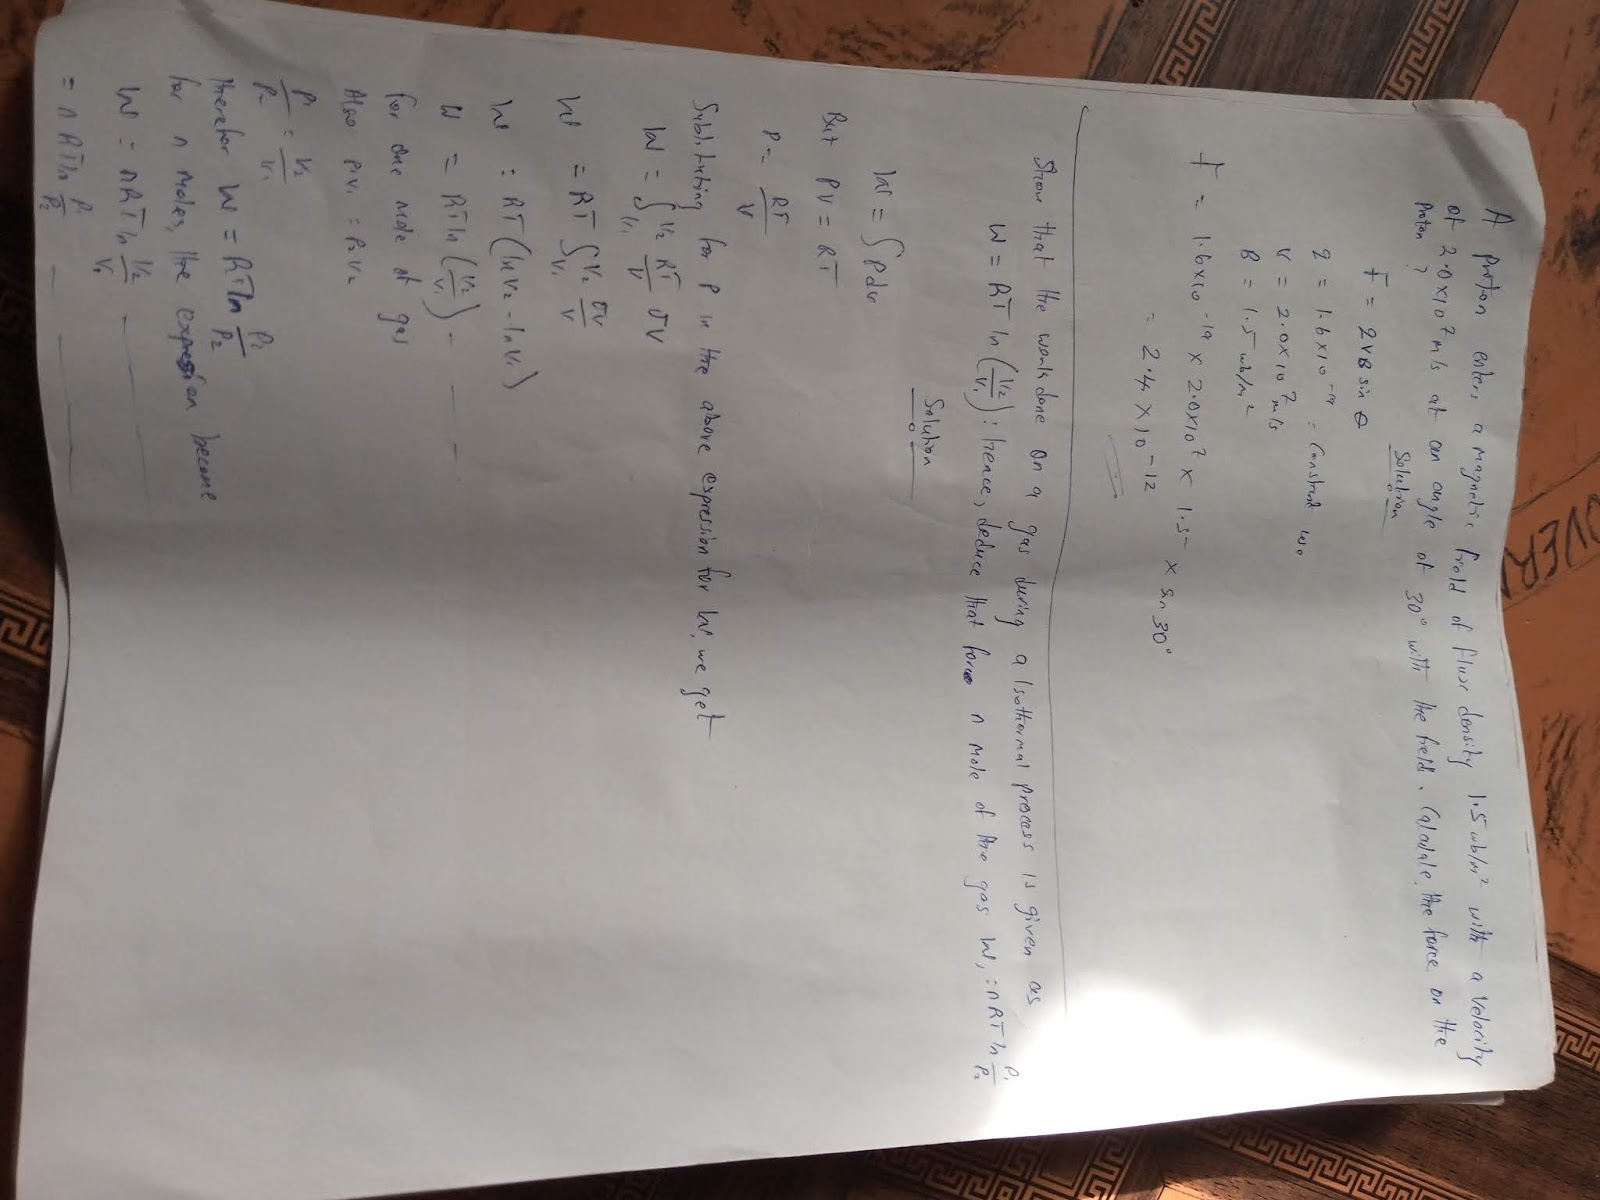 A proton enters a magnetic field of flux density 1.5 wb/m² with a velocity
of 2.0x10⁷ m/s at an angle of 30° with the field. Calculate the force on the
proton?
Solution
F = qVB sin θ
q = 1.6x10⁻¹⁹ = Constant
V = 2.0x10⁷ m/s
B = 1.5 wb/m²
F = 1.6x10⁻¹⁹ x 2.0x10⁷ x 1.5 x sin 30°
= 2.4 x 10⁻¹²
Show that the work done on a gas during a Isothermal process is given as
W = RT ln (V2/V1): hence, deduce that for n mole of the gas W, = nRT ln P1/P2
Solution
W = ∫ Pdv
But PV = RT
P = RT/V
Substituting for P in the above expression for W, we get
W = ∫V1 V2 RT/V δV
W = RT ∫V1 V2 δV/V
W = RT (ln V2 - ln V1)
W = RT ln (V2/V1)
for one mole of gas
Also P1V1 = P2V2
P1/P2 = V2/V1
therefor W = RT ln P1/P2
for n moles, the expression become
W = nRT ln V2/V1
= nRT ln P1/P2